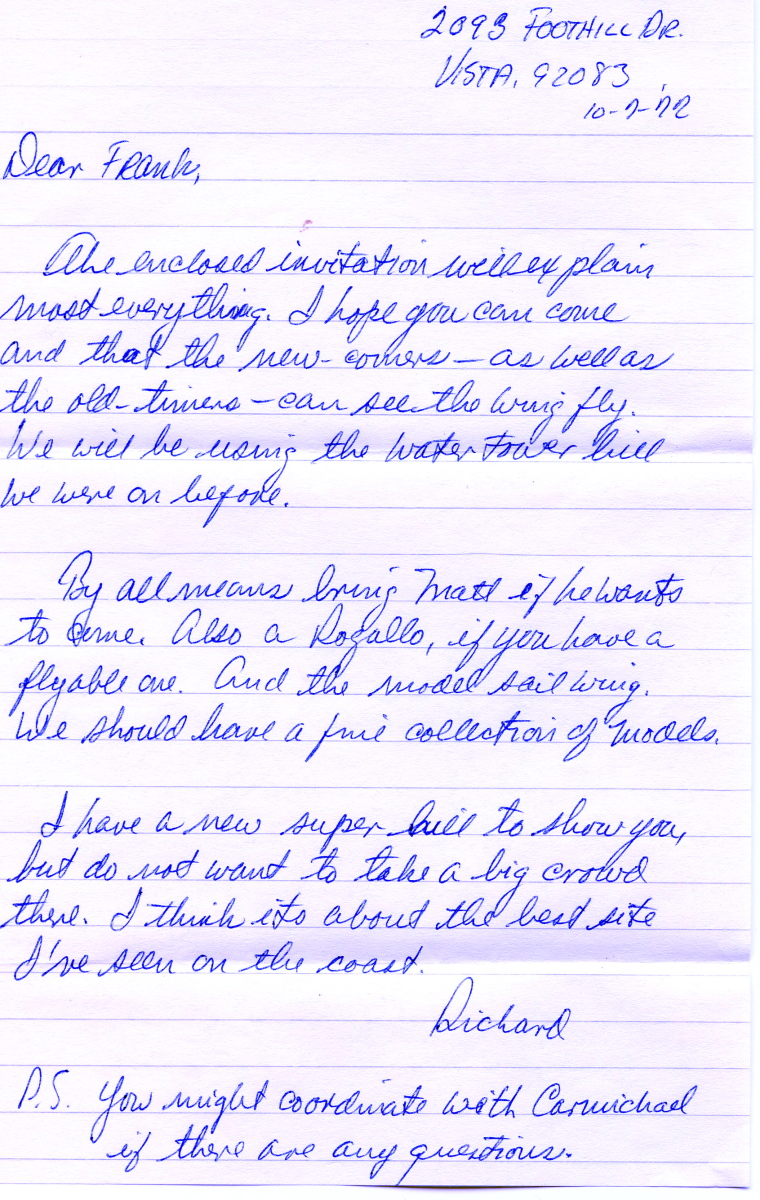 2093 FOOTHILL DR.
VISTA, 92083
10-7-72
Dear Frank,
The enclosed invitation will explain
most everything. I hope you can come
and that the new-comers - as well as
the old-timers - can see the wing fly.
We will be using the water tower hill
we were on before.
By all means bring Matt if he wants
to come. Also a Rogallo, if you have a
flyable one. And the model sail wing.
We should have a fine collection of models.
I have a new super hill to show you,
but do not want to take a big crowd
there. I think its about the best site
I've seen on the coast.
Richard
P.S. You might coordinate with Carmichael
if there are any questions.